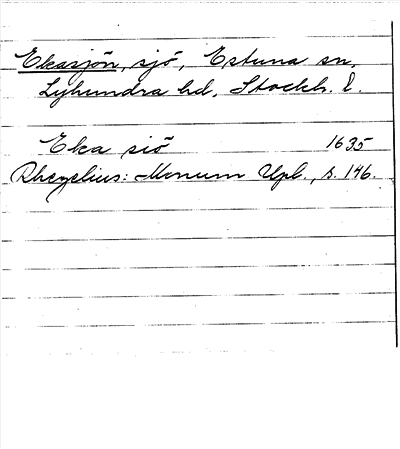 Ekasjön, sjö, Estuna sn,
Lyhundra hd, Stockh. l.
Eka siö 1635
Rhezelius: Monum Upl., s. 146.